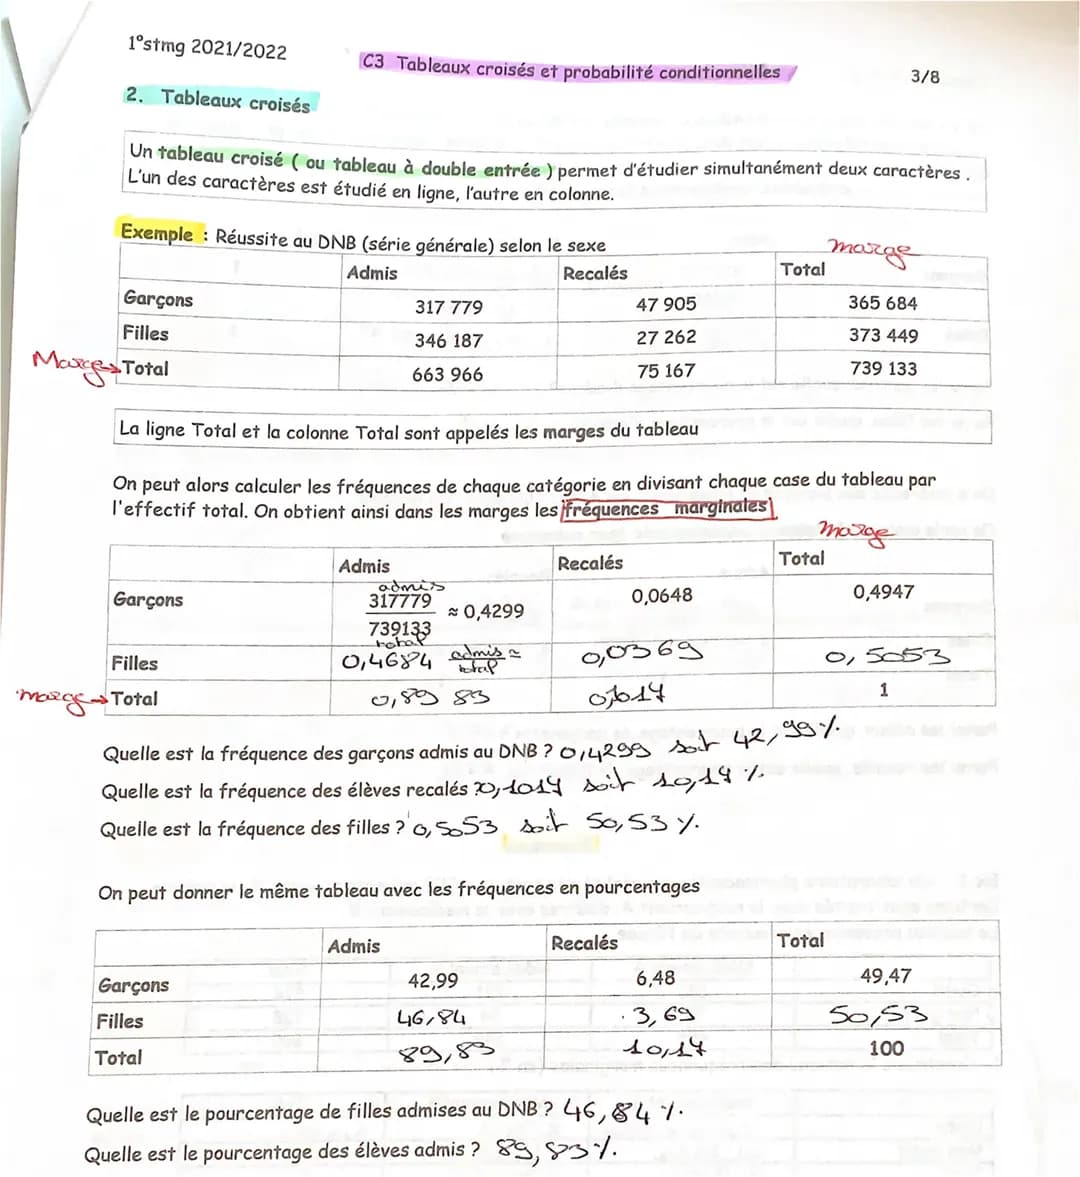 1°stmg 2021/2022
C3 Tableaux croisés et probabilité conditionnelles
3/8
2. Tableaux croisés
Un tableau croisé ( ou tableau à double entrée ) permet d'étudier simultanément deux caractères .
L'un des caractères est étudié en ligne, l'autre en colonne.
Exemple : Réussite au DNB (série générale) selon le sexe
marge
Admis Recalés Total
Garçons 317 779 47 905 365 684
Filles 346 187 27 262 373 449
Marge → Total 663 966 75 167 739 133
La ligne Total et la colonne Total sont appelés les marges du tableau
On peut alors calculer les fréquences de chaque catégorie en divisant chaque case du tableau par
l'effectif total. On obtient ainsi dans les marges les fréquences marginales
marge
Admis Recalés Total
admis
Garçons 317779 ≈ 0,4299 0,0648 0,4947
739133
total
Filles 0,4684 admis ≈ 0,0369 0,5053
total
marge → Total 0,8983 0,1017 1
Quelle est la fréquence des garçons admis au DNB ? 0,4299 soit 42,99 %.
Quelle est la fréquence des élèves recalés ? 0,1017 soit 10,17 %.
Quelle est la fréquence des filles ? 0,5053 soit 50,53 %.
On peut donner le même tableau avec les fréquences en pourcentages
Admis Recalés Total
Garçons 42,99 6,48 49,47
Filles 46,84 3,69 50,53
Total 89,83 10,17 100
Quelle est le pourcentage de filles admises au DNB ? 46,84 %.
Quelle est le pourcentage des élèves admis ? 89,83 %.